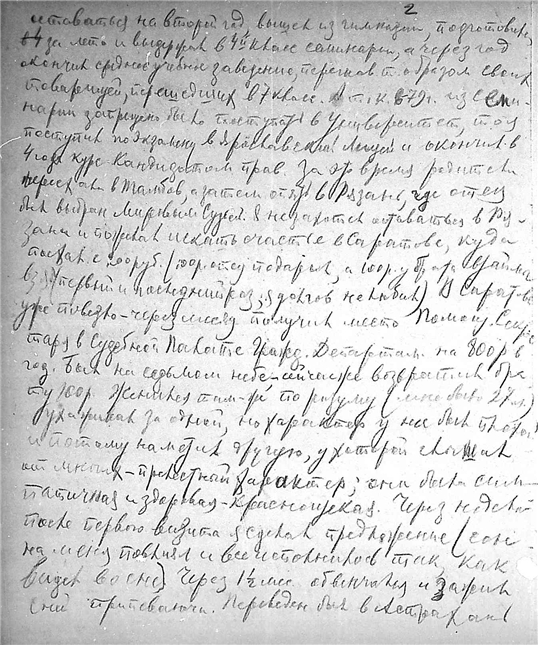 2
оставаться на второй год вышел из гимназии, подготовился
за лето и выдержал в 4й класс семинарии, а через год
окончил среднее учебн. заведение, перегнав т. образом своих
товарищей, перешедших в 7 класс. т. к. в 1879 г. из семи-
нарии запрещено было поступать в Университет, то я
поступил по экзамену в Ярославский Лицей и окончил в
4 года курс кандидатом прав. За это время родители
переехали в Тамбов, а затем опять в Рязань, где отец
был выбран Мировым Судьей. Я не захотел оставаться в Ря-
зани и поехал искать счастье в Саратове, куда
поехал с 200 руб. (100 р. отец подарил, а 100 р. у брата взаймы
взял первый и последний раз; я долгов не любил) В Сарат-ве
уже повезло - через месяц получил место Помощ. Секре
таря в Судебной Палате Гражд. Департам. на 800 р в
год. Был на седьмом небе - сейчас же возвратил бра
ту 100 р. Женился там-же по разуму (мне было 27 л.)
ухаживал за одной, но характер у нее был плохой
и потому наметил другую, у которой слышал
от многих - прелестный характер; она была сим-
патичная и здоровая - краснощекая. Через неделю
после первого визита я сделал предложение (сон
на меня повлиял и все исполнилось так, как
видел во сне) Через 1½ мес. обвенчался и зажил
с ней припеваючи. Переведен был в Астрахань